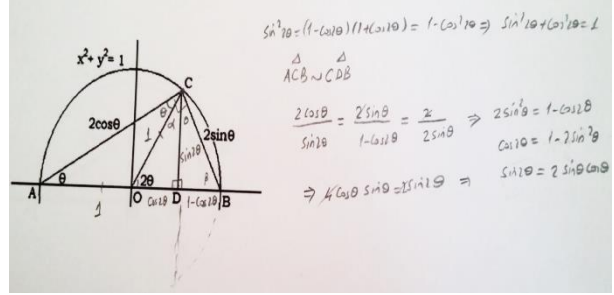 x²+ y²= 1
C
θ
α
θ
2cosθ
1
2sinθ
sin2θ
θ
2θ
β
A
O
D
B
cos2θ
1-cos2θ
1
sin²2θ=(1-cos2θ)(1+cos2θ)= 1-cos²2θ ⇒ sin²2θ+cos²2θ=1
Δ Δ
ACB ~ CDB
2cosθ/sin2θ = 2sinθ/1-cos2θ = 2/2sinθ ⇒ 2sin²θ = 1-cos2θ
cos2θ = 1-2sin²θ
⇒ 4cosθ sinθ = 2sin2θ ⇒ sin2θ = 2 sinθ cosθ